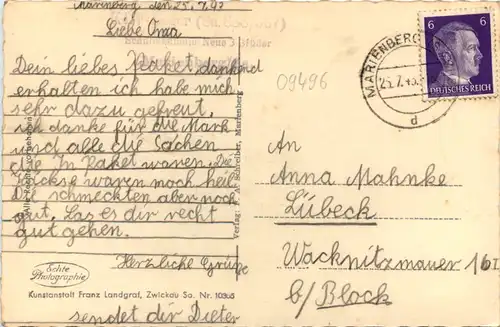 Marienberg den 25.7.43
Liebe Oma
Dein liebes Paket dankend
erhalten ich habe mich
sehr dazu gefreut.
ich danke für die Mark
und alle die Sachen
die im Paket waren. Die
Kekse waren noch heil
die schmeckten aber noch
gut. Las es dir recht
gut gehen.
Herzliche Grüße
sendet dir Dieter
Echte
Photographie
Kunstanstalt Franz Landgraf, Zwickau Sa. Nr. 10365
Neue 3 Städter
Marienberg
Verlag: F. A. Schreiber, Marienberg
09496
MARIENBERG
25.7.43
d
6 6
DEUTSCHES REICH
An
Anna Mahnke
Lübeck
Wacknitzmauer 16 I
b/Block